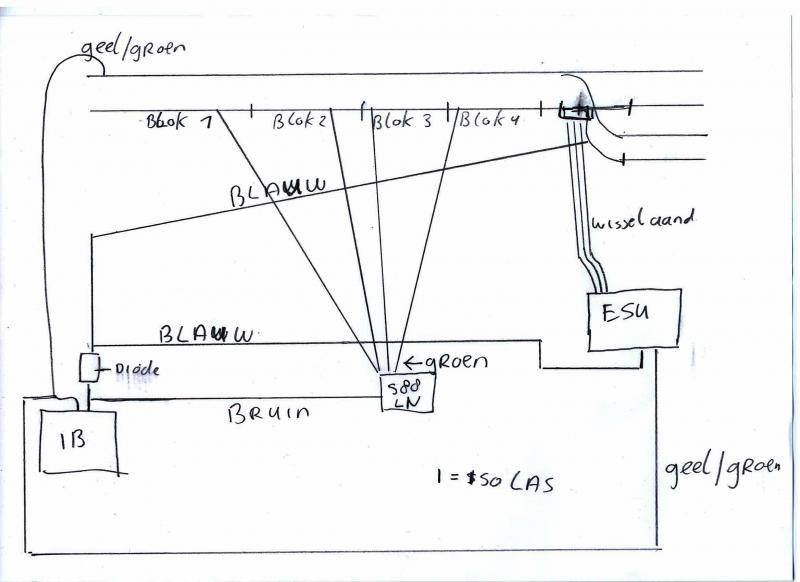 geel/gROEN
Blok 1
Blok 2
Blok 3
Blok 4
BLAUW
wisselaand
ESU
BLAUW
← gROEN
Diode
S88
LN
BRUIN
IB
geel/gROEN
1 = ISOLAS